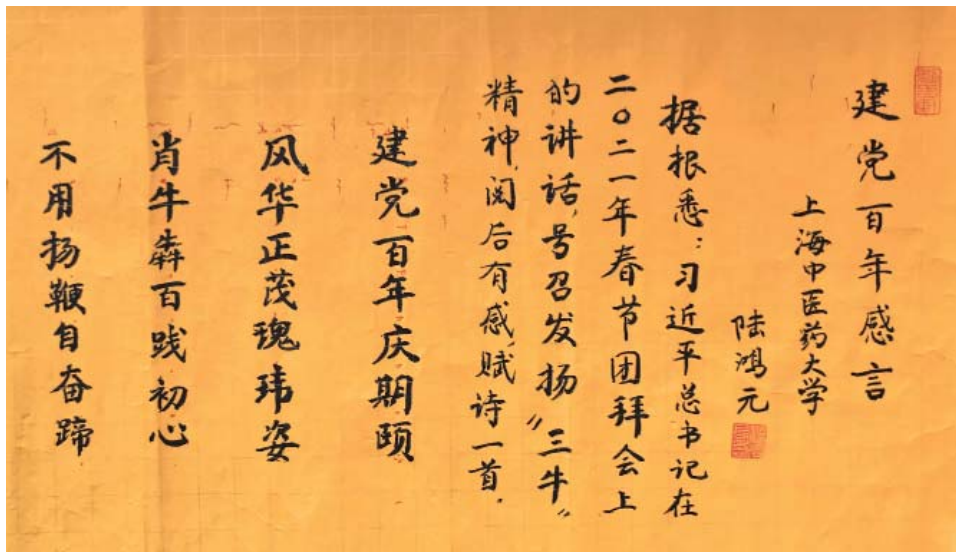 建党百年感言
上海中医药大学
陆鸿元
据根悉：习近平总书记在
二〇二一年春节团拜会上
的讲话，号召发扬“三牛”
精神，阅后有感，赋诗一首。
建党百年庆期颐
风华正茂瑰玮姿
肖牛犇百践初心
不用扬鞭自奋蹄